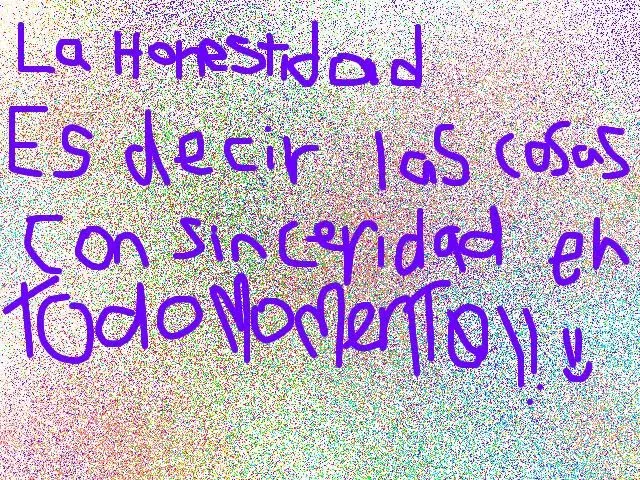 La Honestidad
Es decir las cosas
con sinceridad en
todo momento!! :)